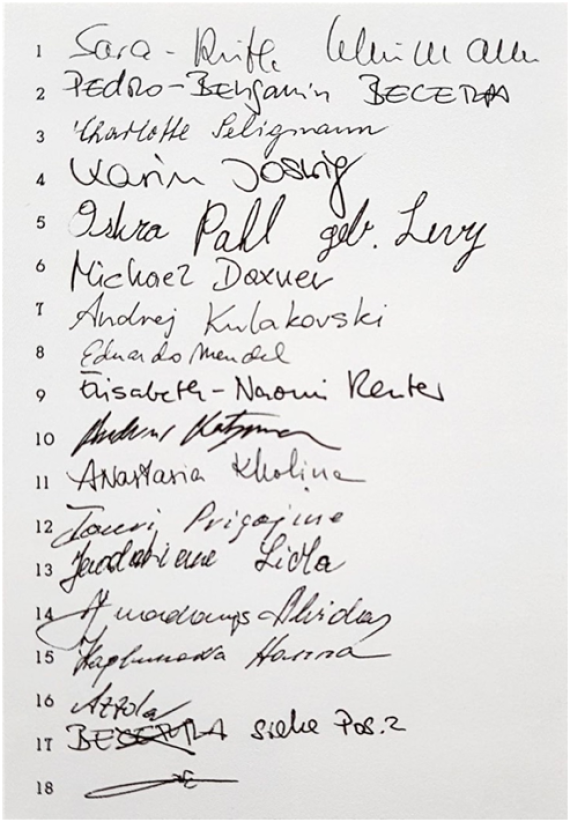 1 Sara-Ruth
2 Pedro-Benjamin BECERRA
3 Charlotte Seligmann
4 Karin Joswig
5 Iskra Pahl geb. Levy
6 Michael Daxner
7 Andrej Kulakovski
8 Eduardo Mendel
9 Elisabeth-Naomi Reuter
10 Katzman
11 Anastasia Kholina
12 Prigojine
13 Lidia
14
15 Hanna
16
17 BECERRA siehe Pos.2
18